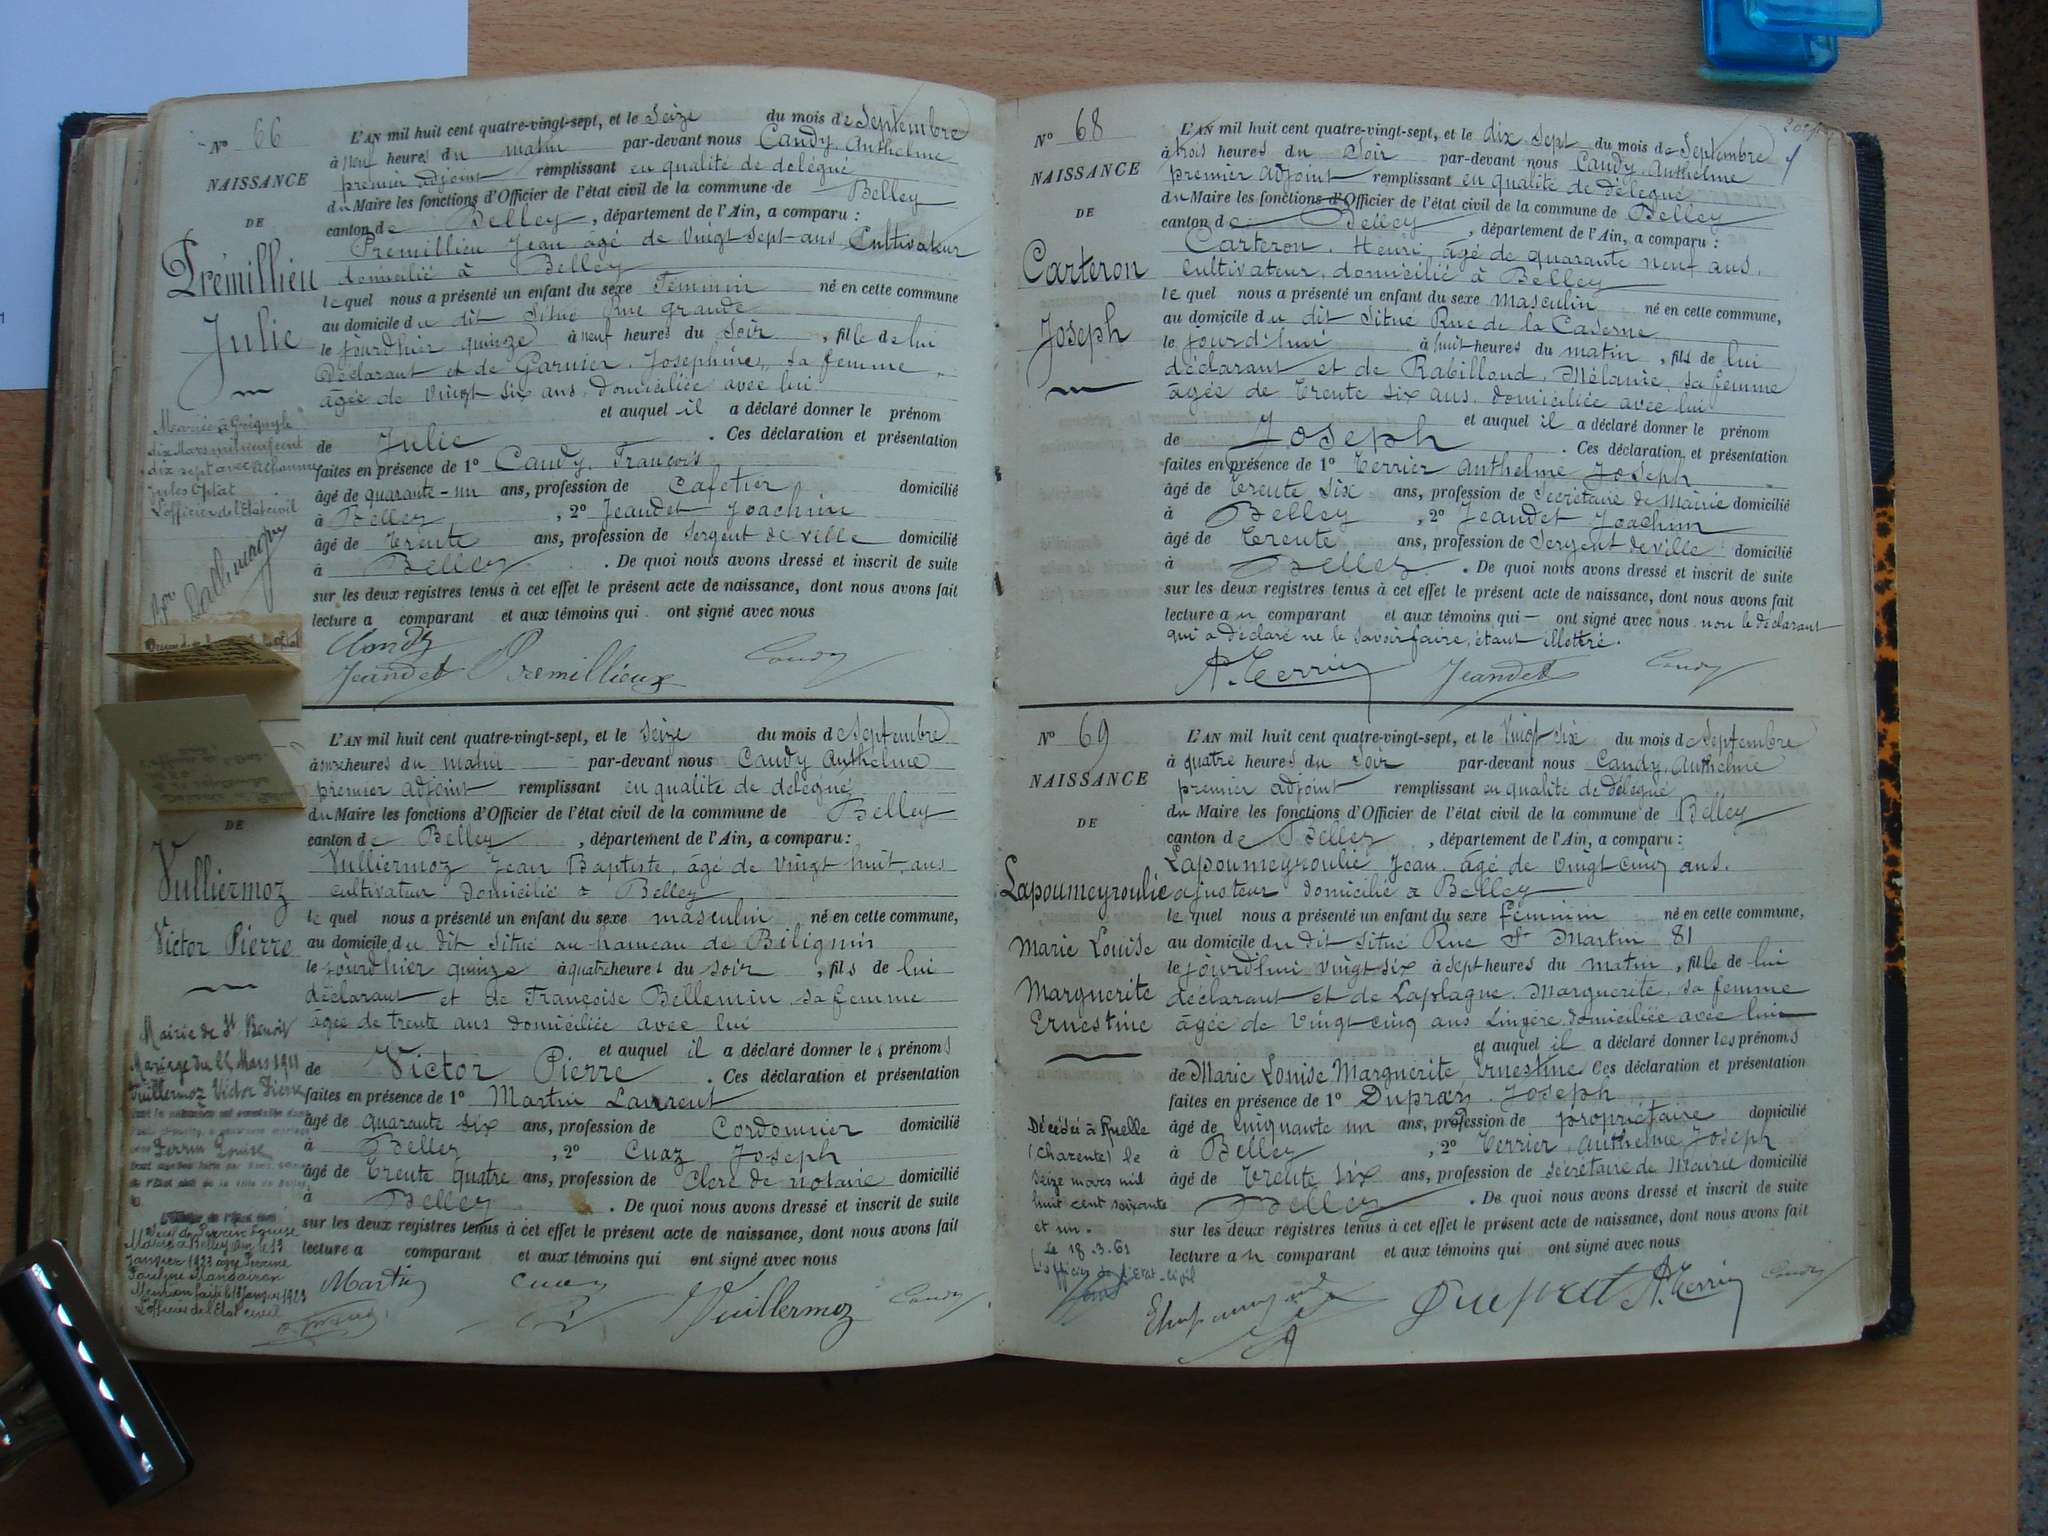 N° 66
NAISSANCE
DE
Prémillieu
Julie
L'AN mil huit cent quatre-vingt-sept, et le Seize du mois de Septembre
à neuf heures du matin par-devant nous Candy, Anthelme
premier adjoint remplissant en qualité de délégué
du Maire les fonctions d'Officier de l'état civil de la commune de Belley
canton de Belley, département de l'Ain, a comparu :
Prémillieu Jean âgé de vingt sept ans Cultivateur
domicilié à Belley
lequel nous a présenté un enfant du sexe Féminin né en cette commune
au domicile du dit Situé Rue grande
le jourdhier quinze à neuf heures du Soir, fille de lui
déclarant et de Garnier, Joséphine, sa femme
âgée de vingt six ans, domiciliée avec lui
et auquel il a déclaré donner le prénom
de Julie. Ces déclaration et présentation
faites en présence de 1° Candy, François
âgé de quarante-un ans, profession de Cafetier domicilié
à Belley, 2° Jeandet Joachim
âgé de Trente ans, profession de Sergent de ville domicilié
à Belley. De quoi nous avons dressé et inscrit de suite
sur les deux registres tenus à cet effet le présent acte de naissance, dont nous avons fait
lecture a comparant et aux témoins qui ont signé avec nous
Candy
Jeandet Premillieux Candy
Mariée à
dix Mars mil neuf cent
dix sept avec
Jules Optat
L'officier de l'Etat civil
NAISSANCE
DE
Vulliermoz
Victor Pierre
L'AN mil huit cent quatre-vingt-sept, et le Seize du mois de Septembre
à onze heures du matin par-devant nous Candy Anthelme
premier adjoint remplissant en qualité de délégué
du Maire les fonctions d'Officier de l'état civil de la commune de Belley
canton de Belley, département de l'Ain, a comparu :
Vulliermoz Jean Baptiste, âgé de vingt huit ans
cultivateur domicilié à Belley
lequel nous a présenté un enfant du sexe masculin né en cette commune,
au domicile du dit situé au hameau de Bilignin
le jourdhier quinze à quatre heures du soir, fils de lui
déclarant et de Françoise Bellemin sa femme
âgée de trente ans domiciliée avec lui
et auquel il a déclaré donner les prénoms
de Victor Pierre. Ces déclaration et présentation
faites en présence de 1° Martin Laurent
âgé de quarante six ans, profession de Cordonnier domicilié
à Belley, 2° Cuaz Joseph
âgé de Trente quatre ans, profession de Clerc de notaire domicilié
à Belley. De quoi nous avons dressé et inscrit de suite
sur les deux registres tenus à cet effet le présent acte de naissance, dont nous avons fait
lecture a comparant et aux témoins qui ont signé avec nous
Martin Cuaz Vuillermoz Candy
Mairie de St Benoit
Mariage du 25 Mars 1911
Vuillermoz Victor Pierre
Perrin Louise
Veuf de Perrin Louise
Marié à Belley le 13
Janvier 1923
Mention faite le 18 Janvier 1923
L'officier de l'Etat civil
N° 68
NAISSANCE
DE
Carteron
Joseph
L'AN mil huit cent quatre-vingt-sept, et le dix Sept du mois de Septembre
à trois heures du Soir par-devant nous Candy, Anthelme
premier adjoint remplissant en qualité de délégué
du Maire les fonctions d'Officier de l'état civil de la commune de Belley
canton de Belley, département de l'Ain, a comparu :
Carteron, Henri, âgé de quarante neuf ans,
cultivateur, domicilié à Belley
lequel nous a présenté un enfant du sexe masculin né en cette commune,
au domicile du dit Situé Rue de la Caserne
le jourd'hui à huit heures du matin, fils de lui
déclarant et de Rabilloud, Mélanie, sa femme
âgée de trente six ans, domiciliée avec lui
et auquel il a déclaré donner le prénom
de Joseph. Ces déclaration et présentation
faites en présence de 1° Terrier Anthelme Joseph
âgé de Trente Six ans, profession de Secrétaire de Mairie domicilié
à Belley, 2° Jeandet Joachim
âgé de Trente ans, profession de Sergent de ville domicilié
à Belley. De quoi nous avons dressé et inscrit de suite
sur les deux registres tenus à cet effet le présent acte de naissance, dont nous avons fait
lecture au comparant et aux témoins qui – ont signé avec nous non le déclarant
qui a déclaré ne le savoir faire, étant illettré.
A. Terrier Jeandet Candy
N° 69
NAISSANCE
DE
Lapoumeyroulie
Marie Louise
Marguerite
Ernestine
L'AN mil huit cent quatre-vingt-sept, et le Vingt six du mois de Septembre
à quatre heures du soir par-devant nous Candy, Anthelme
premier adjoint remplissant en qualité de délégué
du Maire les fonctions d'Officier de l'état civil de la commune de Belley
canton de Belley, département de l'Ain, a comparu :
Lapoumeyroulie Jean, âgé de vingt cinq ans,
ajusteur domicilié à Belley
lequel nous a présenté un enfant du sexe féminin né en cette commune,
au domicile du dit situé Rue St Martin 81
le jourd'hui vingt six à sept heures du matin, fille de lui
déclarant et de Laplagne, Marguerite, sa femme
âgée de vingt cinq ans Lingère domiciliée avec lui
et auquel il a déclaré donner les prénoms
de Marie Louise Marguerite Ernestine Ces déclaration et présentation
faites en présence de 1° Dupraz, Joseph
âgé de Cinquante un ans, profession de propriétaire domicilié
à Belley, 2° Terrier, Anthelme Joseph
âgé de Trente six ans, profession de secrétaire de Mairie domicilié
à Belley. De quoi nous avons dressé et inscrit de suite
sur les deux registres tenus à cet effet le présent acte de naissance, dont nous avons fait
lecture au comparant et aux témoins qui ont signé avec nous
A. Terrier Candy
Décédée à Ruelle
(Charente) le
seize mars mil
huit cent soixante
et un.
Le 18.3.61
L'officier de l'Etat-civil